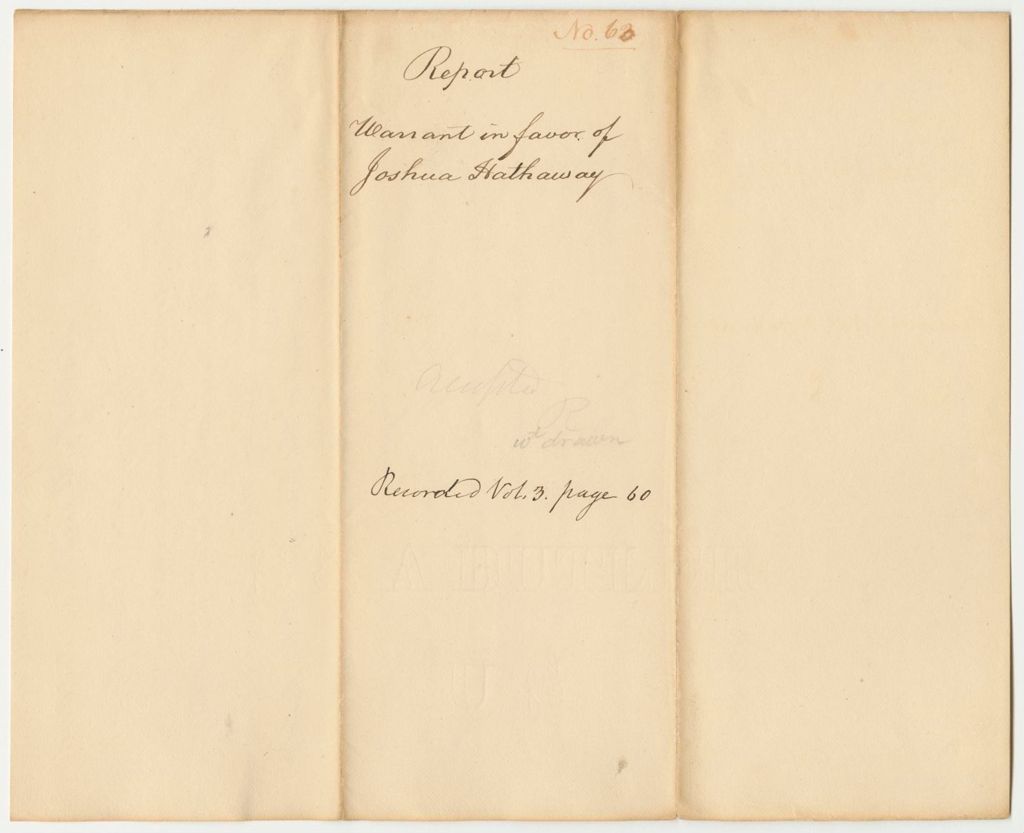 No. 63
Report
Warrant in favor of
Joshua Hathaway
Accepted
wt drawn
Recorded Vol. 3. page 60